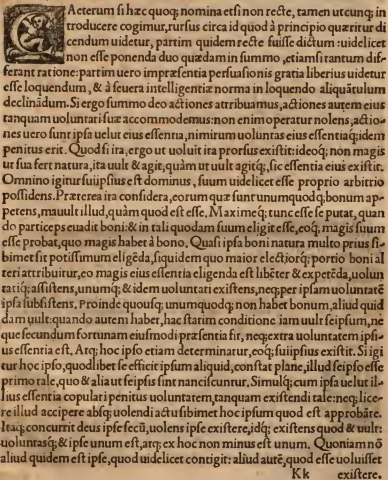 CAeterum si hæc quoq; nomina etsi non recte, tamen utcunq; in
troducere cogimur, rursus circa id quod à principio quæritur di
cendum uidetur, partim quidem recte fuisse dictum: uidelicet
non esse ponenda duo quædam in summo, etiamsi tantum dif-
ferant ratione: partim uero impræsentia persuasionis gratia liberius uidetur
esse loquendum, & à seuera intelligentiæ norma in loquendo aliquãtulum
declinãdum. Si ergo summo deo actiones attribuamus, actiones autem eius
tanquam uoluntati suæ accommodemus: non enim operatur nolens, actio-
nes uero sunt ipsa uelut eius essentia, nimirum uoluntas eius essentiaq; idem
penitus erit. Quod si ita, ergo ut uoluit ita prorsus existit: ideoq; non magis
ut sua fert natura, ita uult & agit, quàm ut uult agitq;, sic essentia eius existit.
Omnino igitur suiipsius est dominus, suum uidelicet esse proprio arbitrio
possidens. Præterea ita considera, eorum quæ sunt unumquodq; bonum ap-
petens, mauult illud, quàm quod est esse. Maximeq; tunc esse se putat, quan
do particeps euadit boni: & in tali quodam suum eligit esse, eoq; magis suum
esse probat, quo magis habet à bono. Quasi ipsa boni natura multo prius si-
bimet sit potissimum eligẽda, siquidem quo maior electiorq; portio boni al
teri attribuitur, eo magis eius essentia eligenda est libẽter & expetẽda, uolun
tatiq; assistens, unumq; & idem uoluntati existens, neq; per ipsam uoluntatẽ
ipsa subsistens. Proinde quousq; unumquodq; non habet bonum, aliud quid
dam uult: quando autem habet, hac statim conditione iam uult seipsum, ne
que secundum fortunam eiusmodi præsentia fit, neq; extra uoluntatem ipsi-
us essentia est. Atq; hoc ipso etiam determinatur, eoq; suiipsius existit. Si igi
tur hoc ipso, quodlibet se efficit ipsum aliquid, constat plane, illud seipso esse
primo tale, quo & alia ut seipsis sint nanciscuntur. Simulq; cum ipsa uelut il-
lius essentia copulari penitus uoluntatem, tanquam existendi tale: neq; lice-
re illud accipere absq; uolendi actu sibimet hoc ipsum quod est approbãte.
Itaq; concurrit deus ipse secũ, uolens ipse existere, idq; existens quod & uult:
uoluntasq; & ipse unum est, atq; ex hoc non minus est unum. Quoniam nõ
aliud quidem est ipse, quod uidelicet contigit: aliud autẽ, quod esse uoluisset
Kk existere.